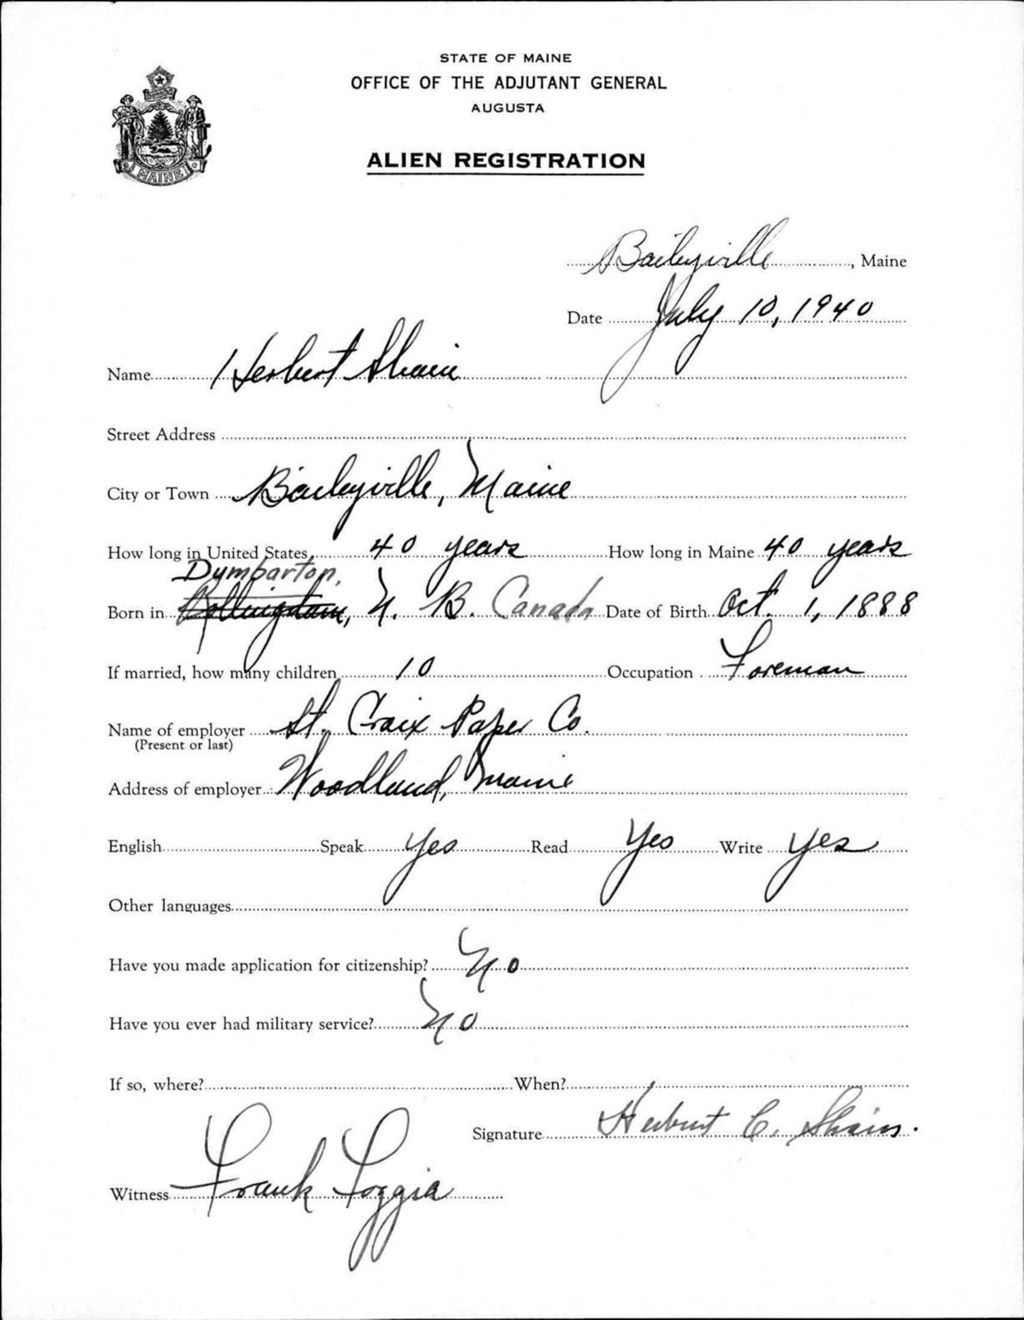 STATE OF MAINE
OFFICE OF THE ADJUTANT GENERAL
AUGUSTA
ALIEN REGISTRATION
MAINE
Baileyville, Maine
Date July 10, 1940
Name Herbert Shain
Street Address
City or Town Baileyville, Maine
How long in United States 40 years How long in Maine 40 years
Dumbarton,
Born in N. B. Canada Date of Birth Oct. 1, 1888
If married, how many children 10 Occupation Foreman
Name of employer St. Croix Paper Co.
(Present or last)
Address of employer Woodland, Maine
English Speak Yes Read Yes Write Yes
Other languages
Have you made application for citizenship? No
Have you ever had military service? No
If so, where? When?
Signature Herbert C. Shain.
Witness Frank Loggia